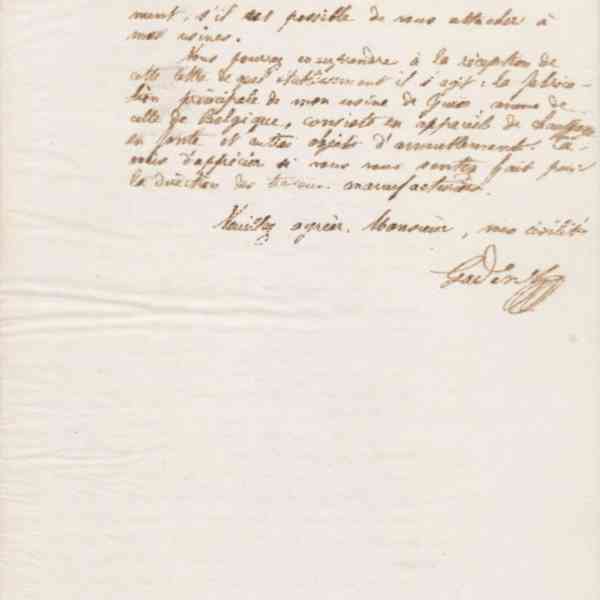 ment, s'il est possible de vous attacher à
mes usines.
Vous pourrez comprendre à la réception de
cette lettre de quel établissement il s'agit : la fabrica-
tion principale de mon usine de Guise comme de
celle de Belgique, consiste en appareils de chauffage
en fonte et autres objets d'ameublement. À
vous d'apprécier si vous vous sentez fait pour
la direction des travaux manufacturiers.
Veuillez agréer, Monsieur, mes civilités
Godin